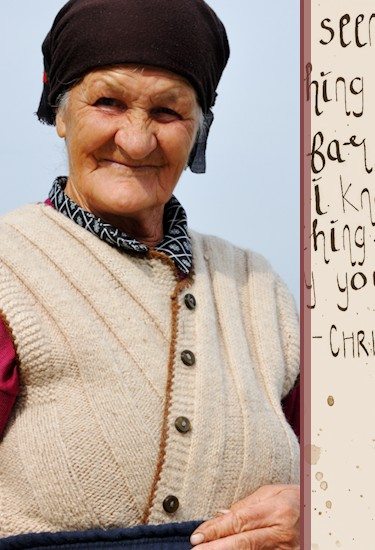 seen
hing
far
i kn
thing
y you
- CHRI